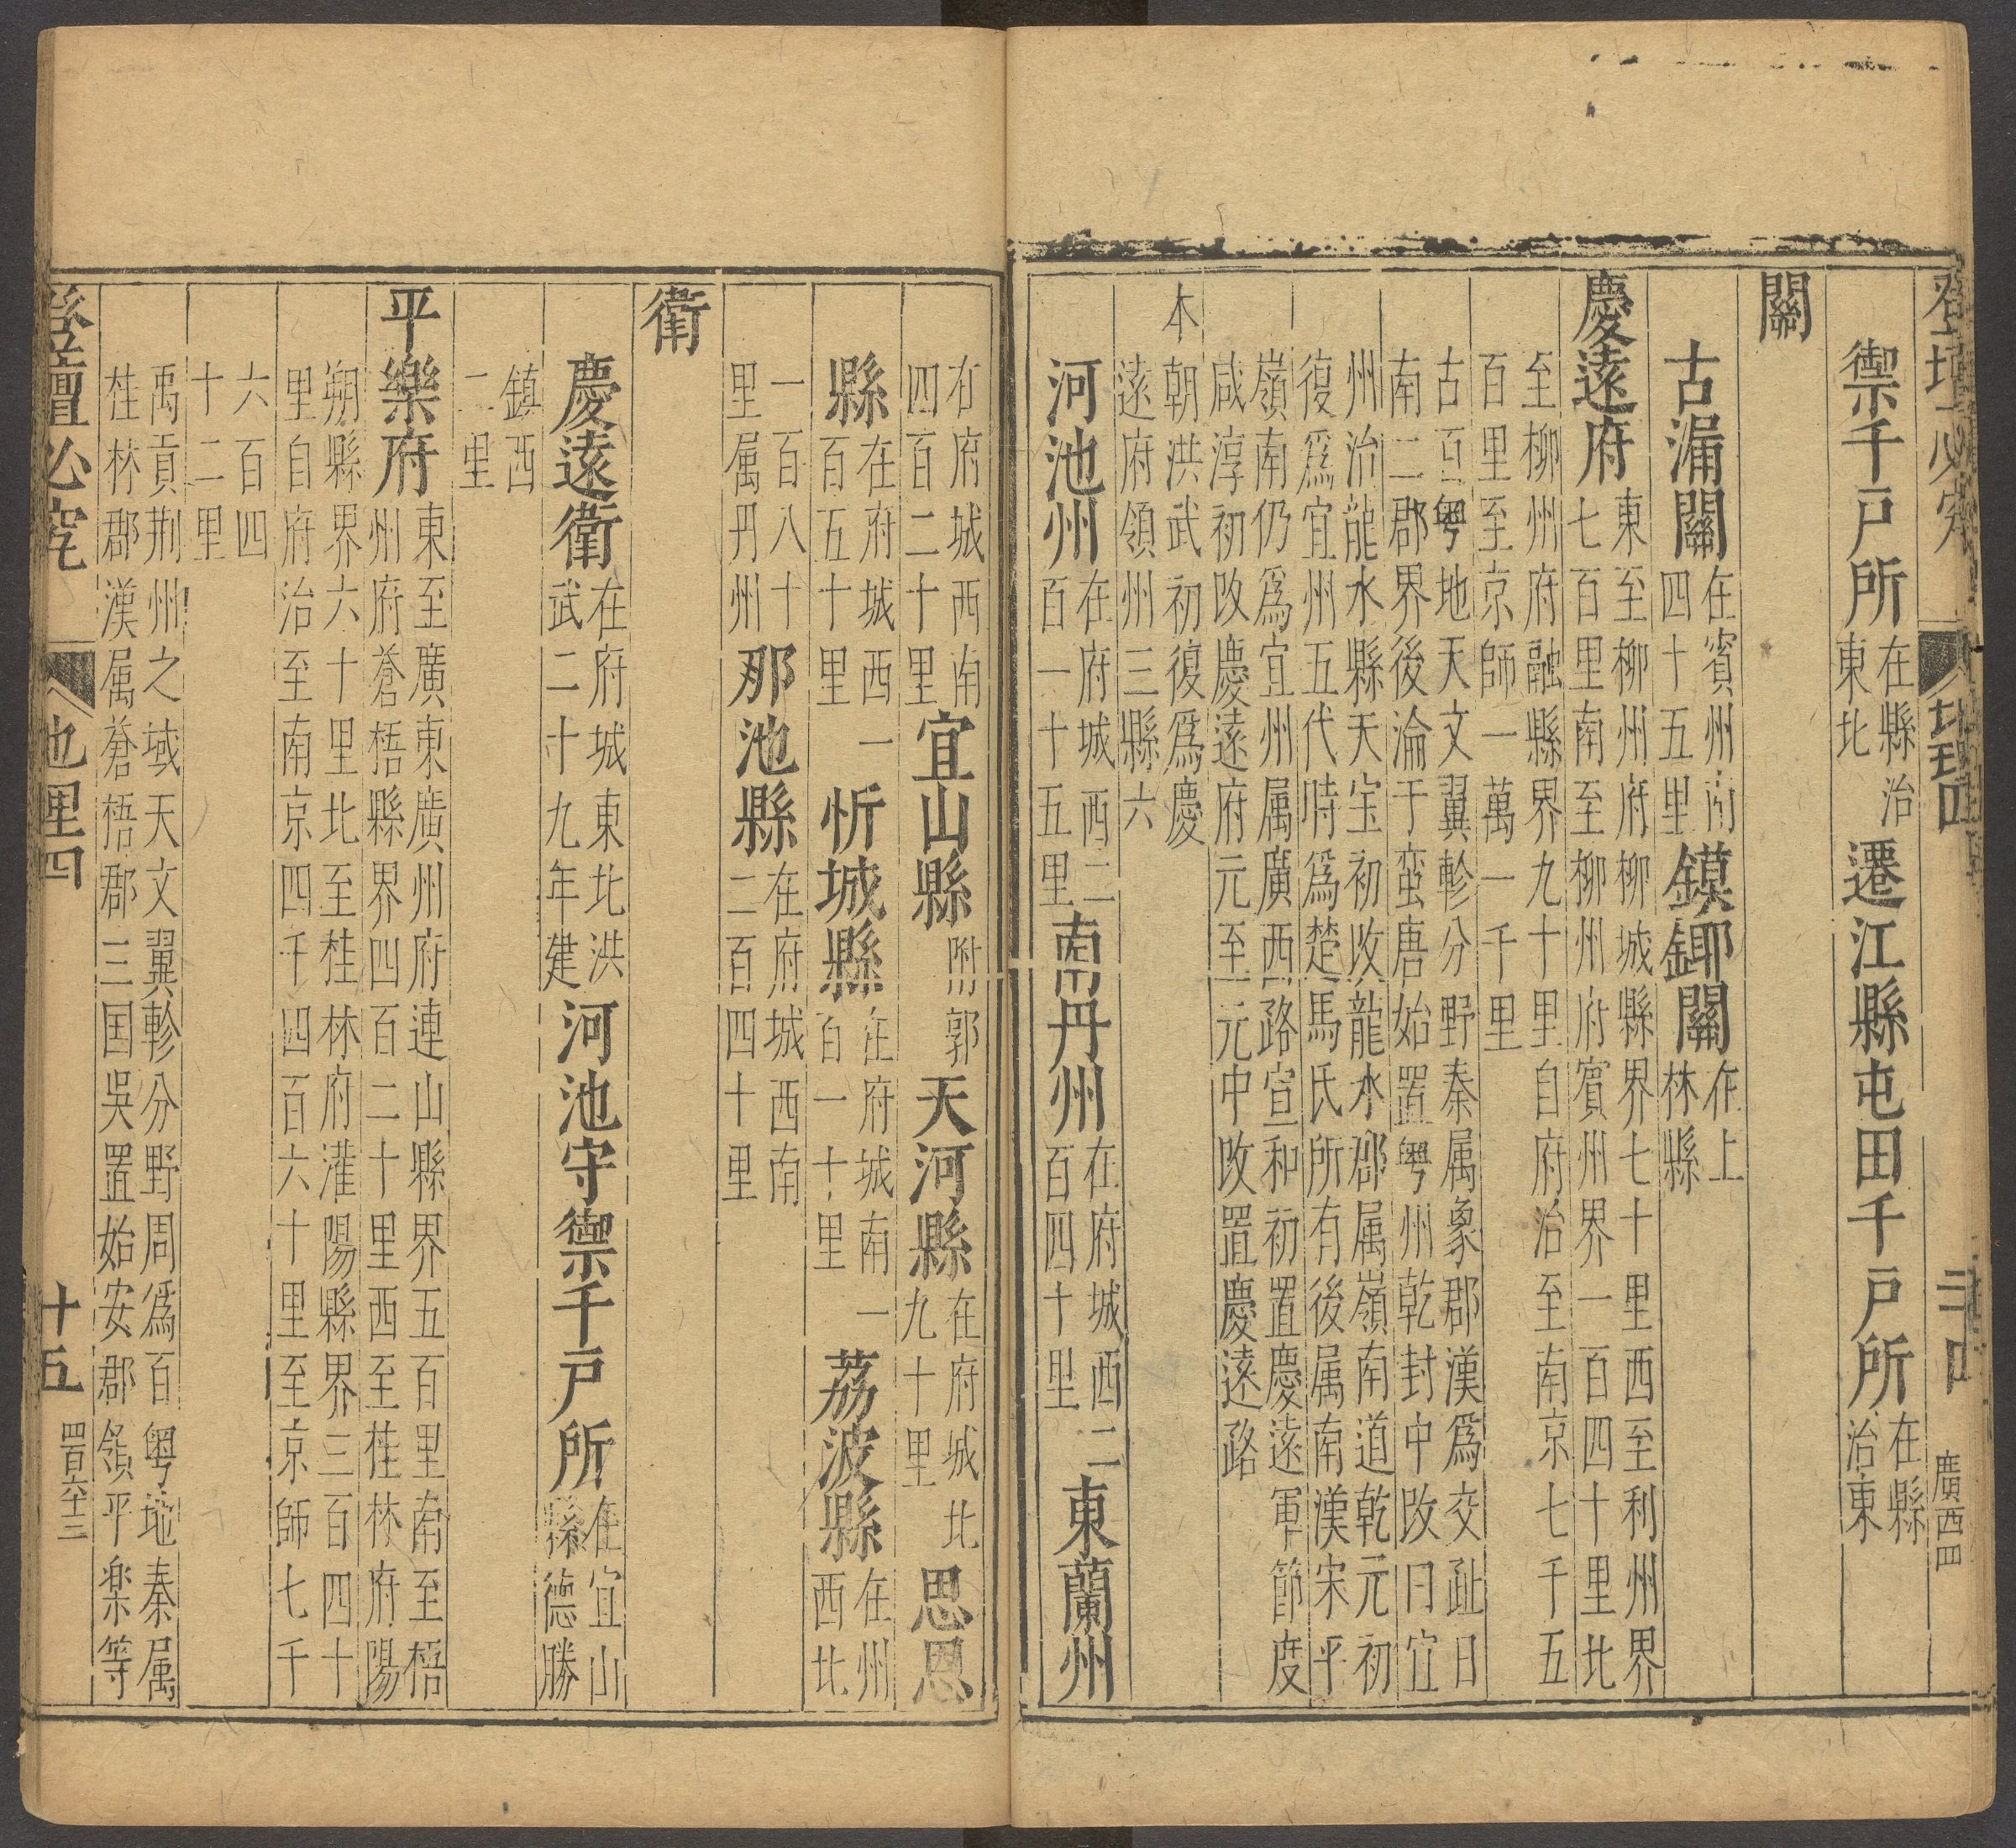 登壇必究 地理四 廣西四
禦千戶所在縣治東北遷江縣屯田千戶所在縣治東
關
古漏關在賓州南四十五里鏌鎁關在上林縣
慶遠府東至柳州府柳城縣界七十里西至利州界七百里南至柳州府賓州界一百四十里北
至柳州府融縣界九十里自府治至南京七千五百里至京師一萬一千里
古百粵地天文翼軫分野秦属象郡漢爲交趾日南二郡界後淪于蛮唐始置粵州乾封中改曰宜
州治龍水縣天宝初改龍水郡属嶺南道乾元初復爲宜州五代時爲楚馬氏所有後属南漢宋平
嶺南仍爲宜州属廣西路宣和初置慶遠軍節度咸淳初改慶遠府元至元中改置慶遠路
本朝洪武初復爲慶遠府領州三縣六
河池州在府城西二百一十五里南丹州在府城西二百四十里東蘭州
在府城西南四百二十里宜山縣附郭天河縣在府城北九十里思恩
縣在府城西一百五十里忻城縣在府城南一百一十里荔波縣在州西北
一百八十里属丹州那池縣在府城西南二百四十里
衛
慶遠衛在府城東北洪武二十九年建河池守禦千戶所在宜山縣德勝
鎮西二里
平樂府東至廣東廣州府連山縣界五百里南至梧州府蒼梧縣界四百二十里西至桂林府陽
朔縣界六十里北至桂林府灌陽縣界三百四十里自府治至南京四千四百六十里至京師七千
六百四十二里
禹貢荆州之域天文翼軫分野周爲百粵地秦属桂林郡漢属蒼梧郡三国吳置始安郡領平楽等
登壇必究 地理四 十五 四百六十三